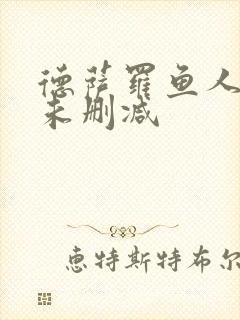 德萨罗鱼人
未删减
惠特斯特布尔